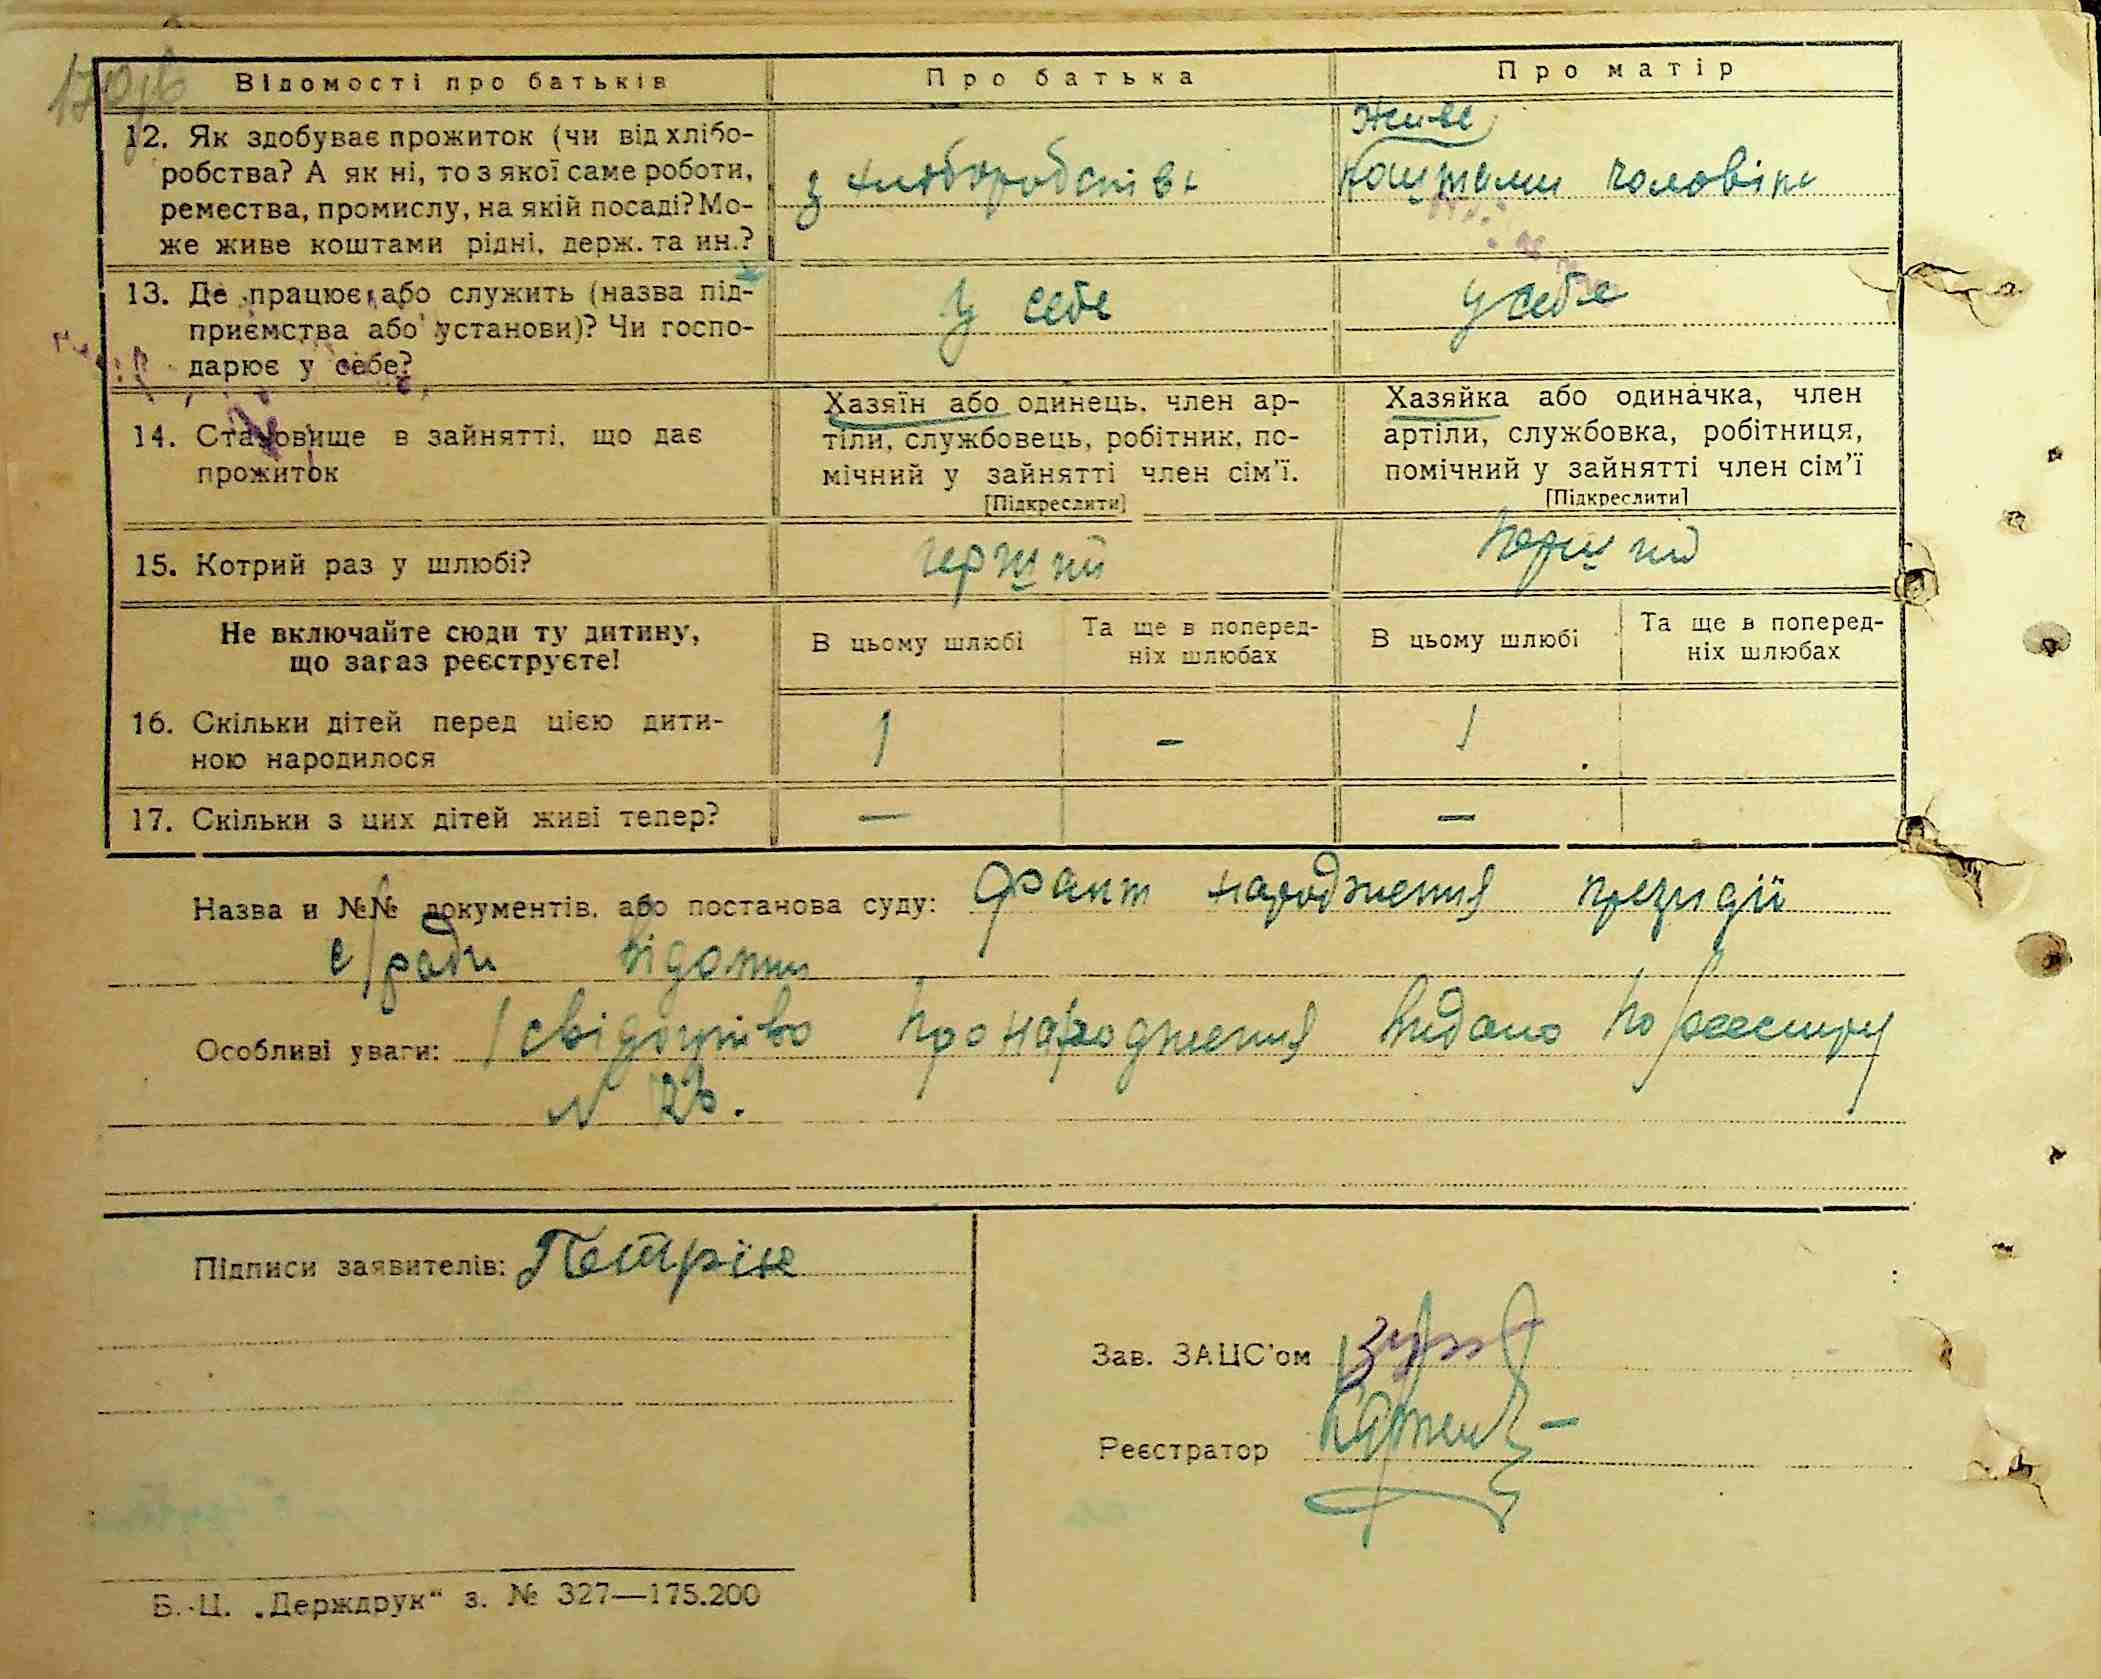 Відомості про батьків
Про батька
Про матір
12. Як здобуває прожиток (чи від хлібо-
робства? А як ні, то з якої саме роботи,
ремества, промислу, на якій посаді? Мо-
же живе коштами рідні, держ. та ин.?
з хлібороб
живе
коштами чоловіка
13. Де працює або служить (назва під-
приємства або установи)? Чи госпо-
дарює у себе?
У себе
у себе
14. Становище в зайнятті, що дає
прожиток
Хазяїн або одинець, член ар-
тіли, службовець, робітник, по-
мічний у зайнятті член сім'ї.
[Підкреслити]
Хазяйка або одиначка, член
артіли, службовка, робітниця,
помічний у зайнятті член сім'ї
[Підкреслити]
15. Котрий раз у шлюбі?
перший
перший
Не включайте сюди ту дитину,
що зараз реєструєте!
В цьому шлюбі
Та ще в поперед-
ніх шлюбах
В цьому шлюбі
Та ще в поперед-
ніх шлюбах
16. Скільки дітей перед цією дити-
ною народилося
1
-
1
17. Скільки з цих дітей живі тепер?
—
—
Назва и №№ документів, або постанова суду: Факт народження президії
с/ради відомий
Особливі уваги: свідоцтво про народження видано по реєстру
N
Підписи заявителів: Петрін
Зав. ЗАЦС'ом
Реєстратор
Б. Ц. „Держдрук“ з. № 327—175.200